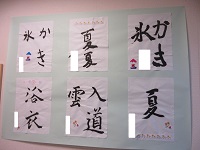 かき
氷
夏
夏
かき
氷
夏
入道
雲
浴衣